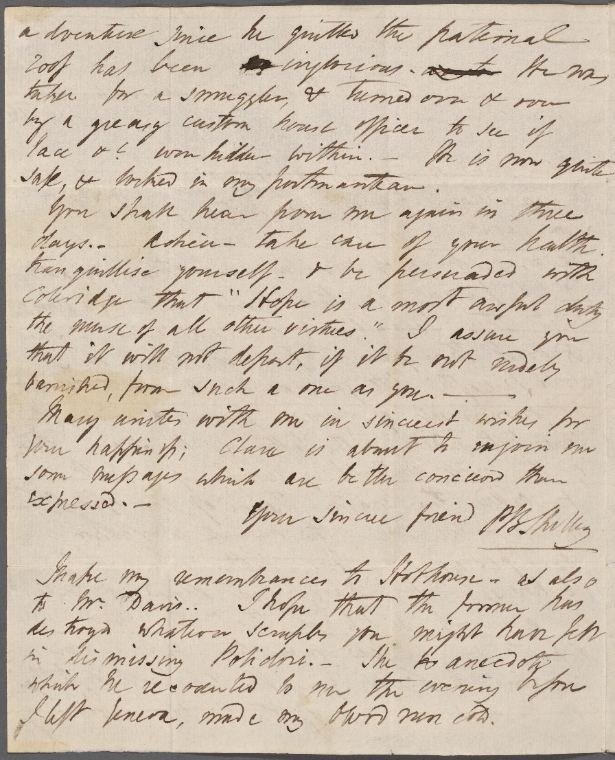 adventure since he quitted the paternal
roof has been inglorious. He was
taken for a smuggler, & turned over & over
by a greasy custom house officer to see if
lace &c was hidden within.— He is now quite
safe, & locked in my portmanteau.
You shall hear from me again in three
days.— Adieu— take care of your health.
tranquillise yourself— & be persuaded with
Coleridge that "Hope is a most awful duty
the nurse of all other virtues." I assure you
that it will not depart, if it be not rudely
banished, from such a one as you.—
Mary unites with me in sincerest wishes for
your happiness; Clare is about to enjoin me
some messages which are better conceived than
expressed.—
Your sincere friend PB Shelley
Make my remembrances to Hobhouse— as also
to Mr. Davis.. I hope that the former has
destroyed whatever scruples you might have felt
in dismissing Polidori.— The anecdote
which he recounted to me the evening before
I left Geneva, made my blood run cold.